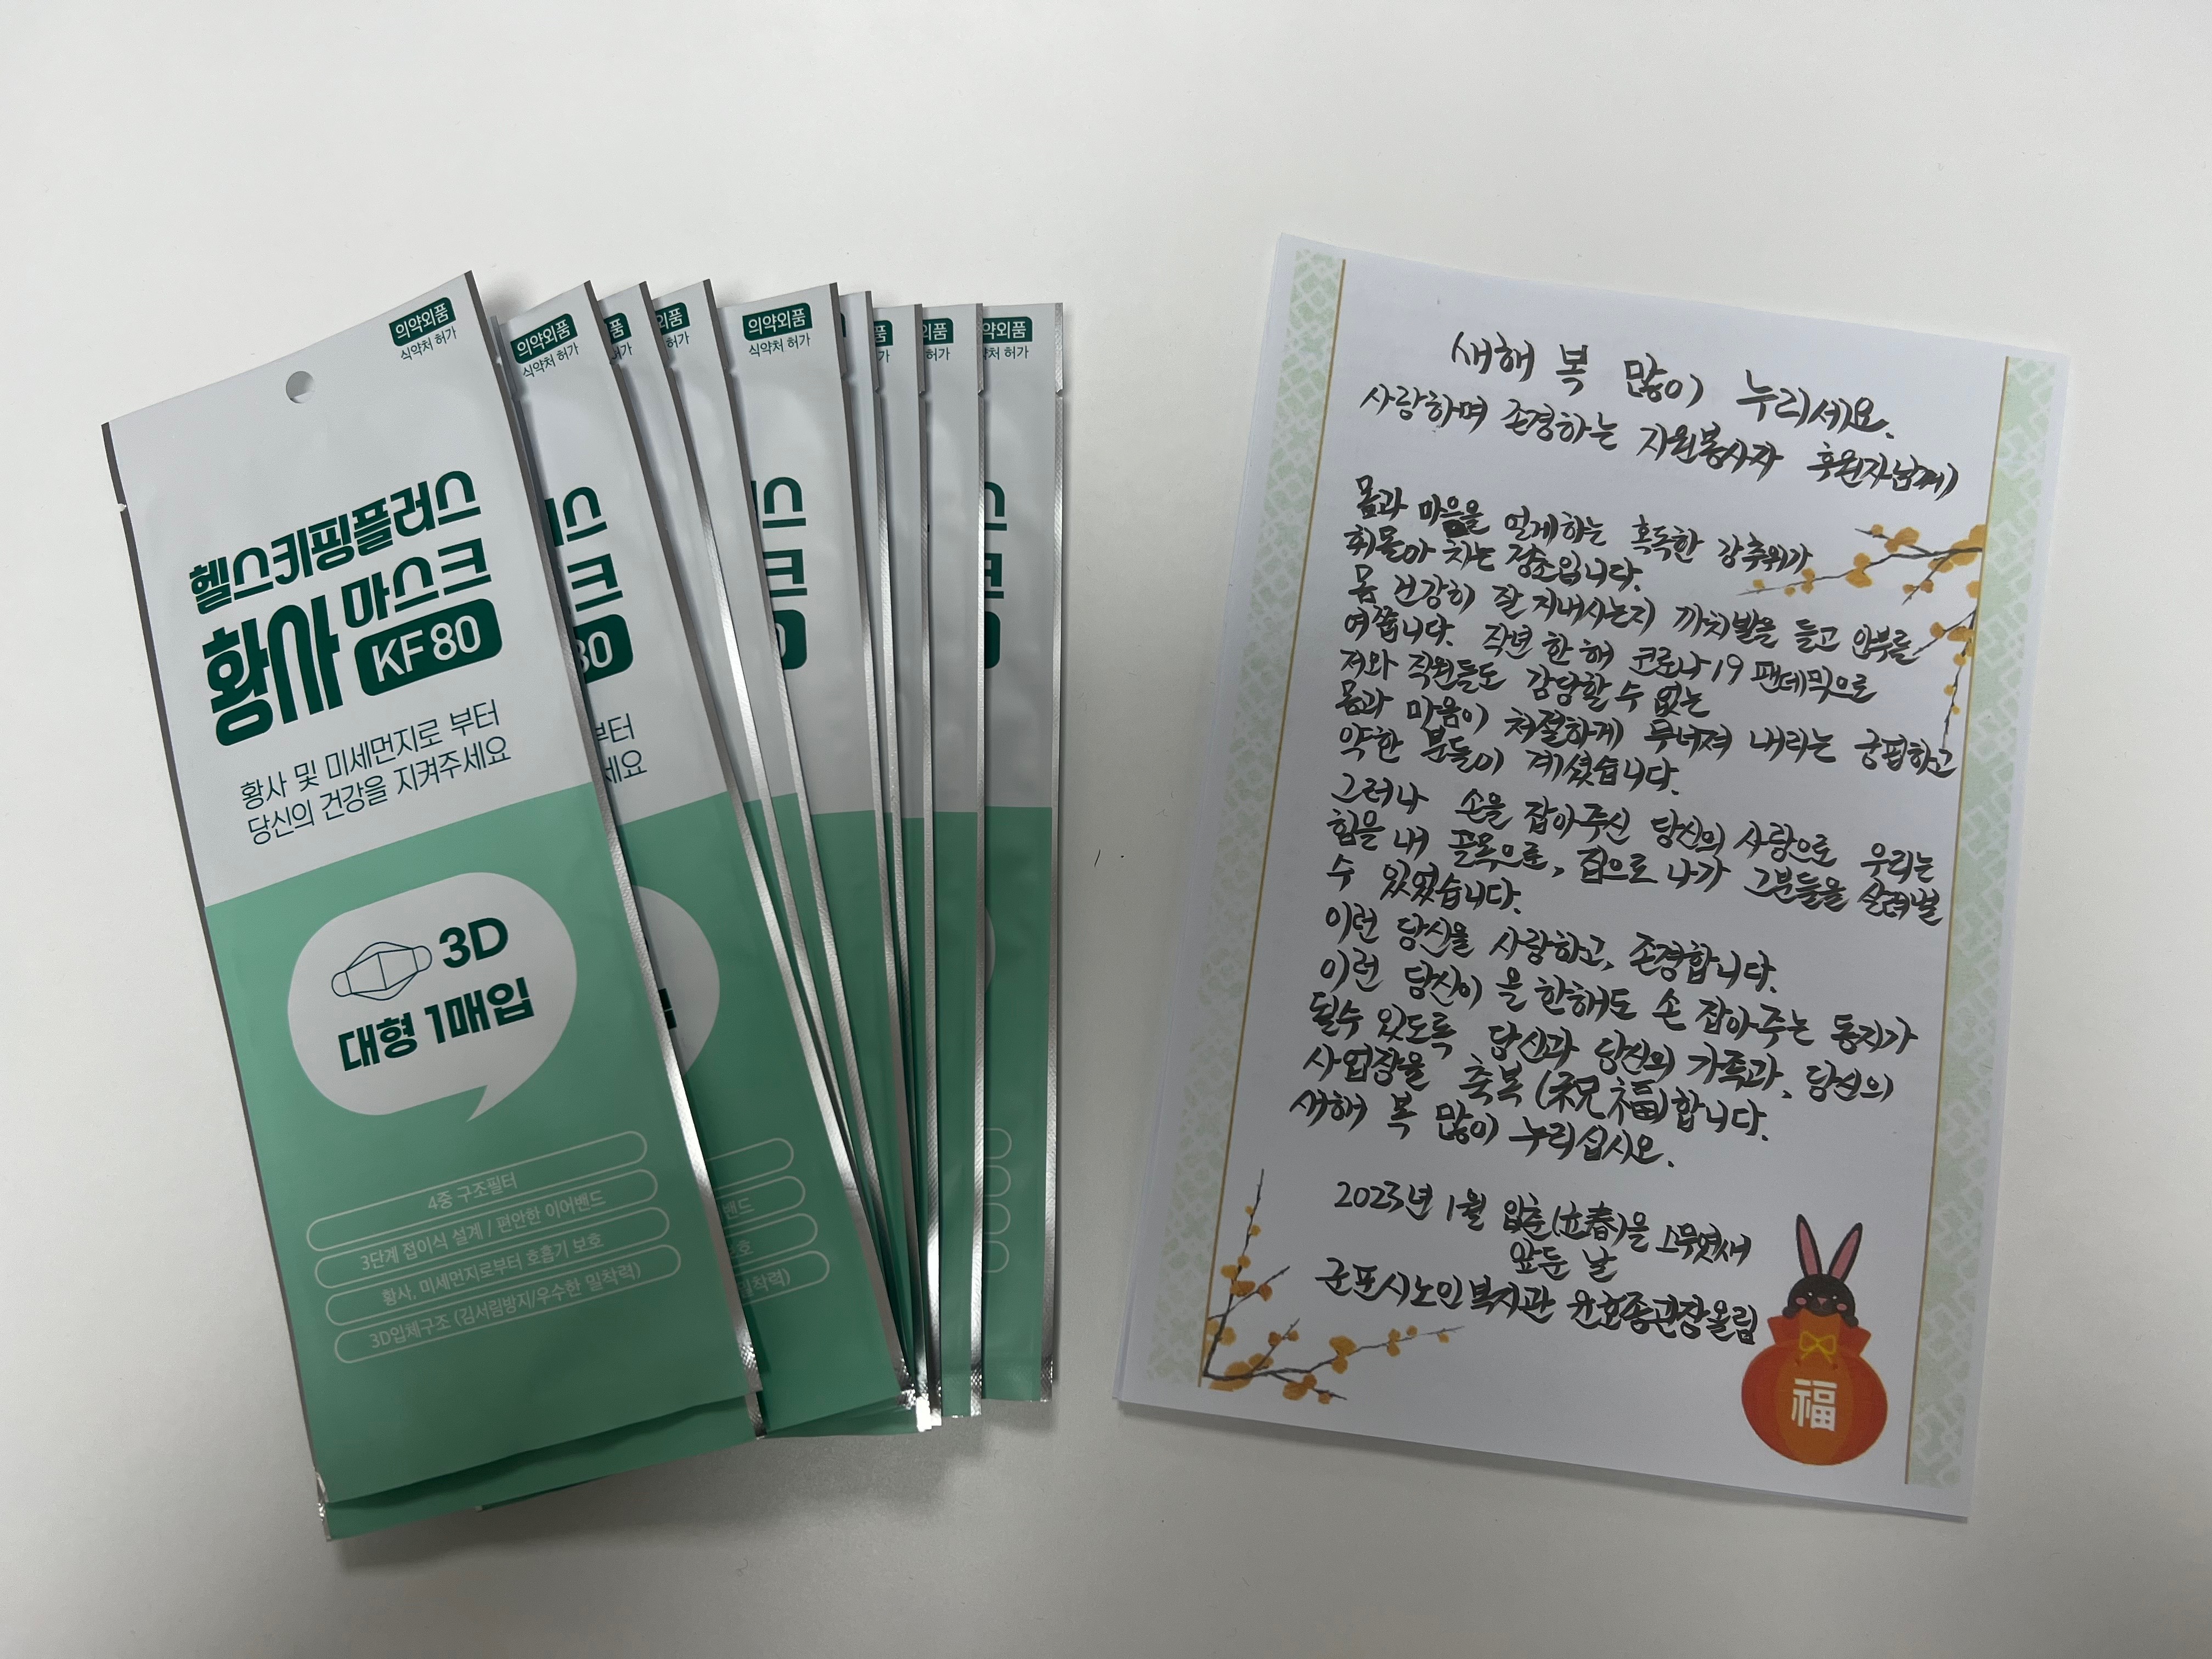 의약외품
식약처 허가
헬스키핑플러스
황사 마스크
KF80
황사 및 미세먼지로 부터
당신의 건강을 지켜주세요
3D
대형 1매입
4중 구조필터
3단계 접이식 설계 / 편안한 이어밴드
황사, 미세먼지로부터 호흡기 보호
3D입체구조 (김서림방지/우수한 밀착력)
의약외품
식약처 허가
스
스크
80
부터
세요
밴드
보호
밀착력)
외품
허가
의약외품
식약처 허가
스
크
품
외품
허가
약외품
약처 허가
새해 복 많이 누리세요.
사랑하며 존경하는 자원봉사자 후원자님께
몸과 마음을 얼게하는 혹독한 강추위가
휘몰아 치는 정초입니다.
몸 건강히 잘 지내시는지 까치발을 들고 안부를
여쭙니다. 작년 한 해 코로나19 팬데믹으로
저와 직원들도 감당할 수 없는
몸과 마음이 처절하게 무너져 내리는 궁핍하고
약한 분들이 계셨습니다.
그러나 손을 잡아주신 당신의 사랑으로 우리는
힘을 내 골목으로, 집으로 나가 그분들을 살려낼
수 있었습니다.
이런 당신을 사랑하고, 존경합니다.
이런 당신이 올 한해도 손 잡아주는 동지가
될수 있도록 당신과 당신의 가족과, 당신의
사업장을 축복(祝福)합니다.
새해 복 많이 누리십시오.
2023년 1월 입춘(立春)을 스무엿새
앞둔 날
군포시노인복지관 윤호종관장올림
福